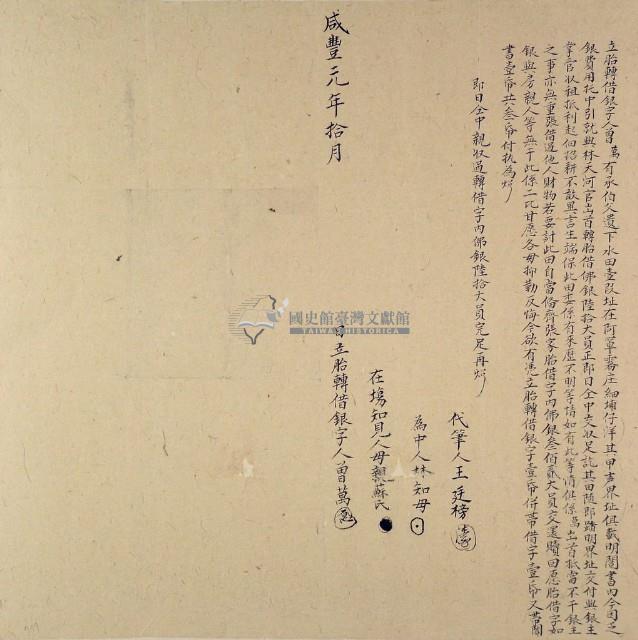 立胎轉借銀字人曾萬有承伯父遺下水田壹段址在阿罩霧庄細埔仔洋其甲声界址俱載明鬮書內今因乏
銀費用托中引就與林天河官出首轉胎借佛銀陸拾大員正即日仝中交收足訖其田隨即踏明界址交付與銀主
掌管收租抵利起佃招耕不敢異言生端保此田委係有來歷不明等情如有此等情俱係萬出首抵當不干銀主
之事亦無重張借過他人財物若要討此田自當俻齊張家胎借字內佛銀叁佰貳大員交還贖回愿胎借字如
銀與房親人等無干此係二比甘愿各毋抑勒反悔今欲有憑立胎轉借銀字壹帋併帶借字壹帋又帶鬮
書壹帋共叁帋付執為炤
即日仝中親收過轉借字內佛銀陸拾大員完足再炤
代筆人王廷榜
為中人林知母
在塲知見人母親蘇氏
日立胎轉借銀字人曾萬
咸豐元年拾月
國史館臺灣文獻館
TAIWAN HISTORICA